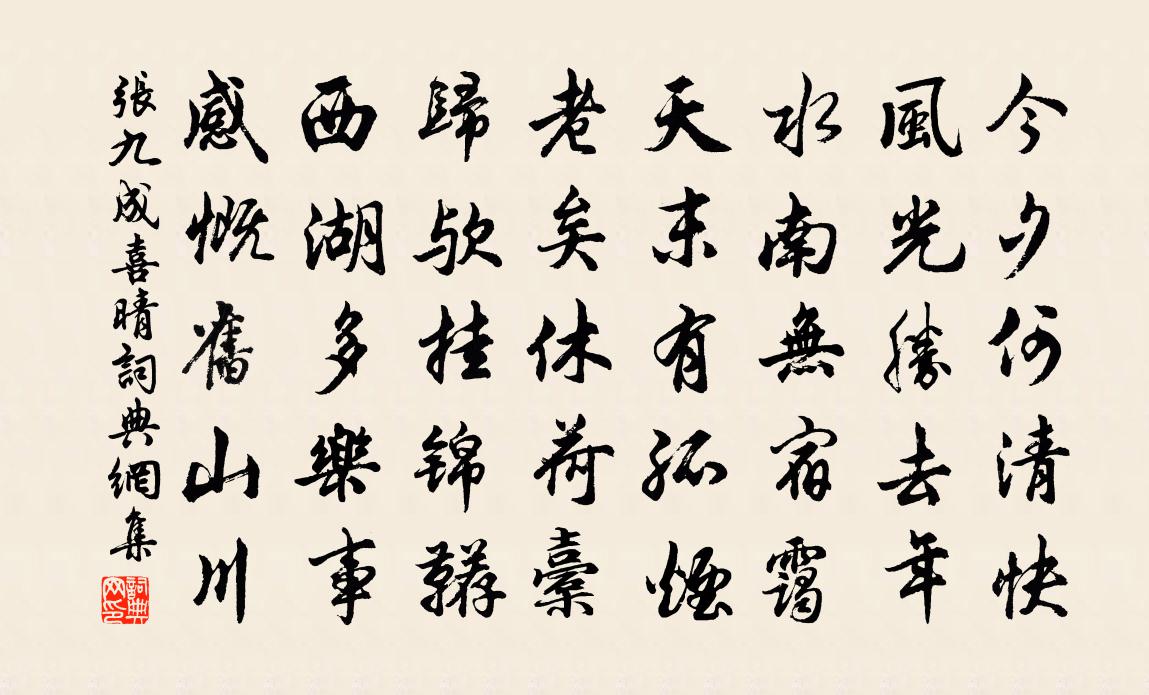 今夕何清快
風光勝去年
水南無宿靄
天末有孤煙
老矣休荷橐
歸歟挂錦韉
西湖多樂事
感慨舊山川
張九成喜晴詞典網集
詞典网印